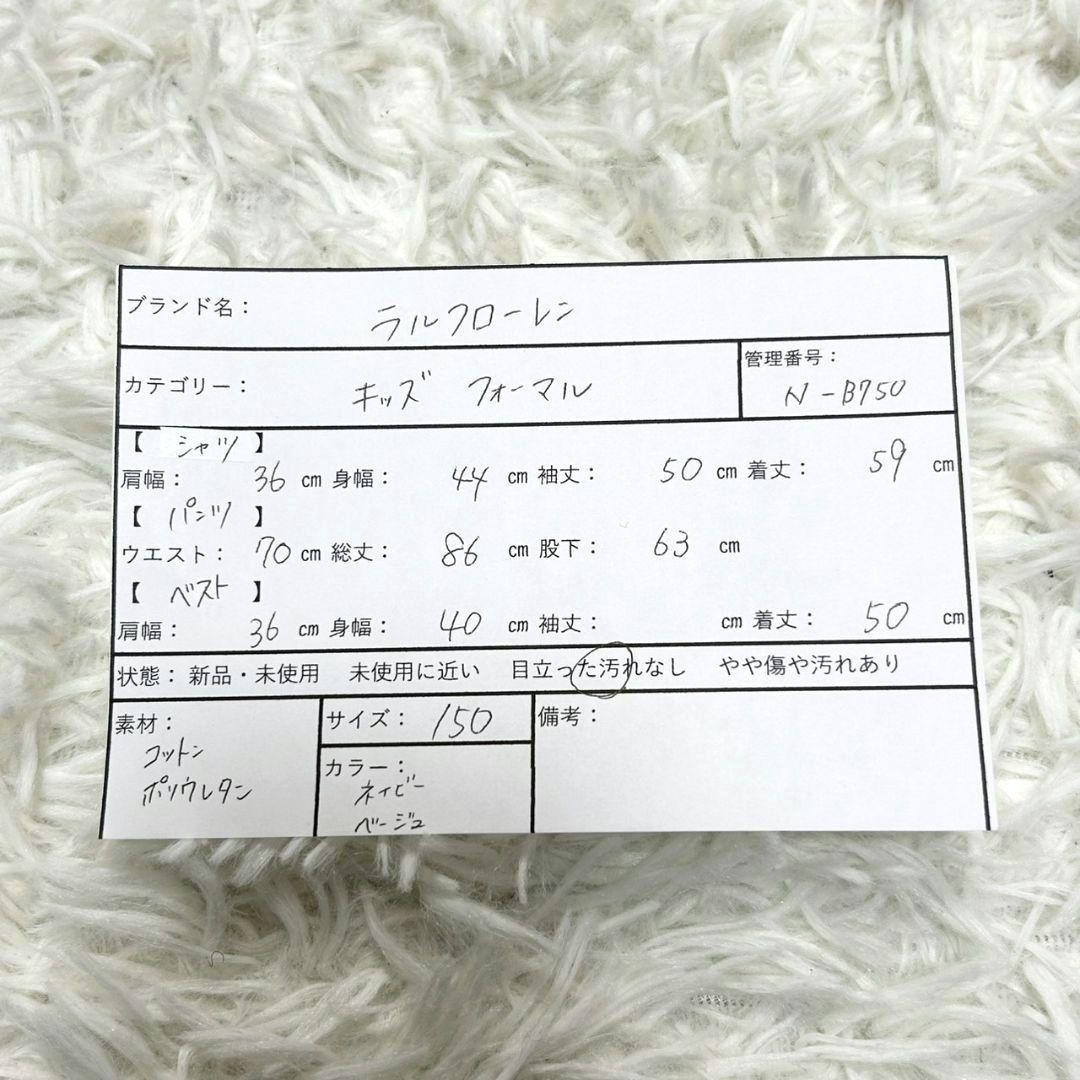 ブランド名： ラルフローレン
カテゴリー： キッズ フォーマル
管理番号：
N-B750
【 シャツ 】
肩幅： 36 cm 身幅： 44 cm 袖丈： 50 cm 着丈： 59 cm
【 パンツ 】
ウエスト： 70 cm 総丈： 86 cm 股下： 63 cm
【 ベスト 】
肩幅： 36 cm 身幅： 40 cm 袖丈： cm 着丈： 50 cm
状態： 新品・未使用 未使用に近い 目立った汚れなし やや傷や汚れあり
素材：
コットン
ポリウレタン
サイズ： 150
カラー：
ネイビー
ベージュ
備考：